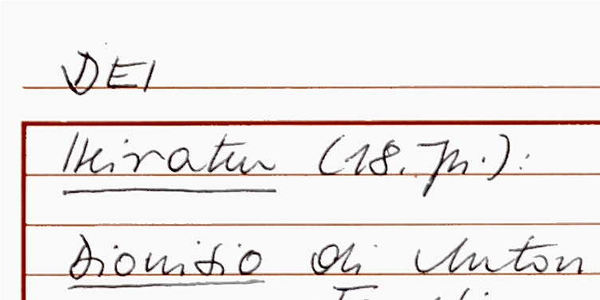 DEI
Heiraten (18. Jh.):
Dionisio di Anton